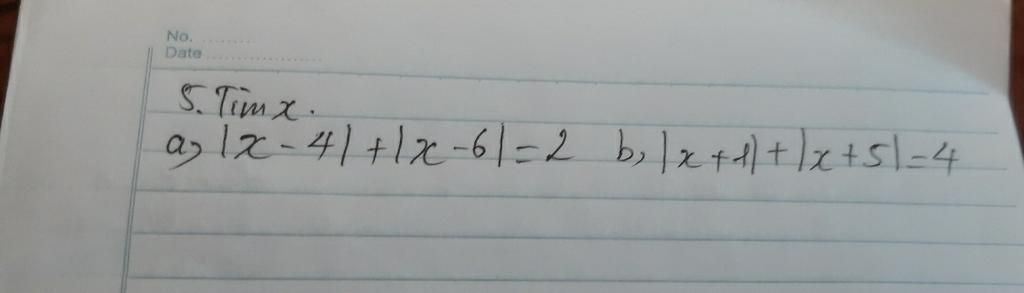 No. ..........
Date ....................
5. Tìm x.
a, |x - 4| + |x - 6| = 2 b, |x + 1| + |x + 5| = 4